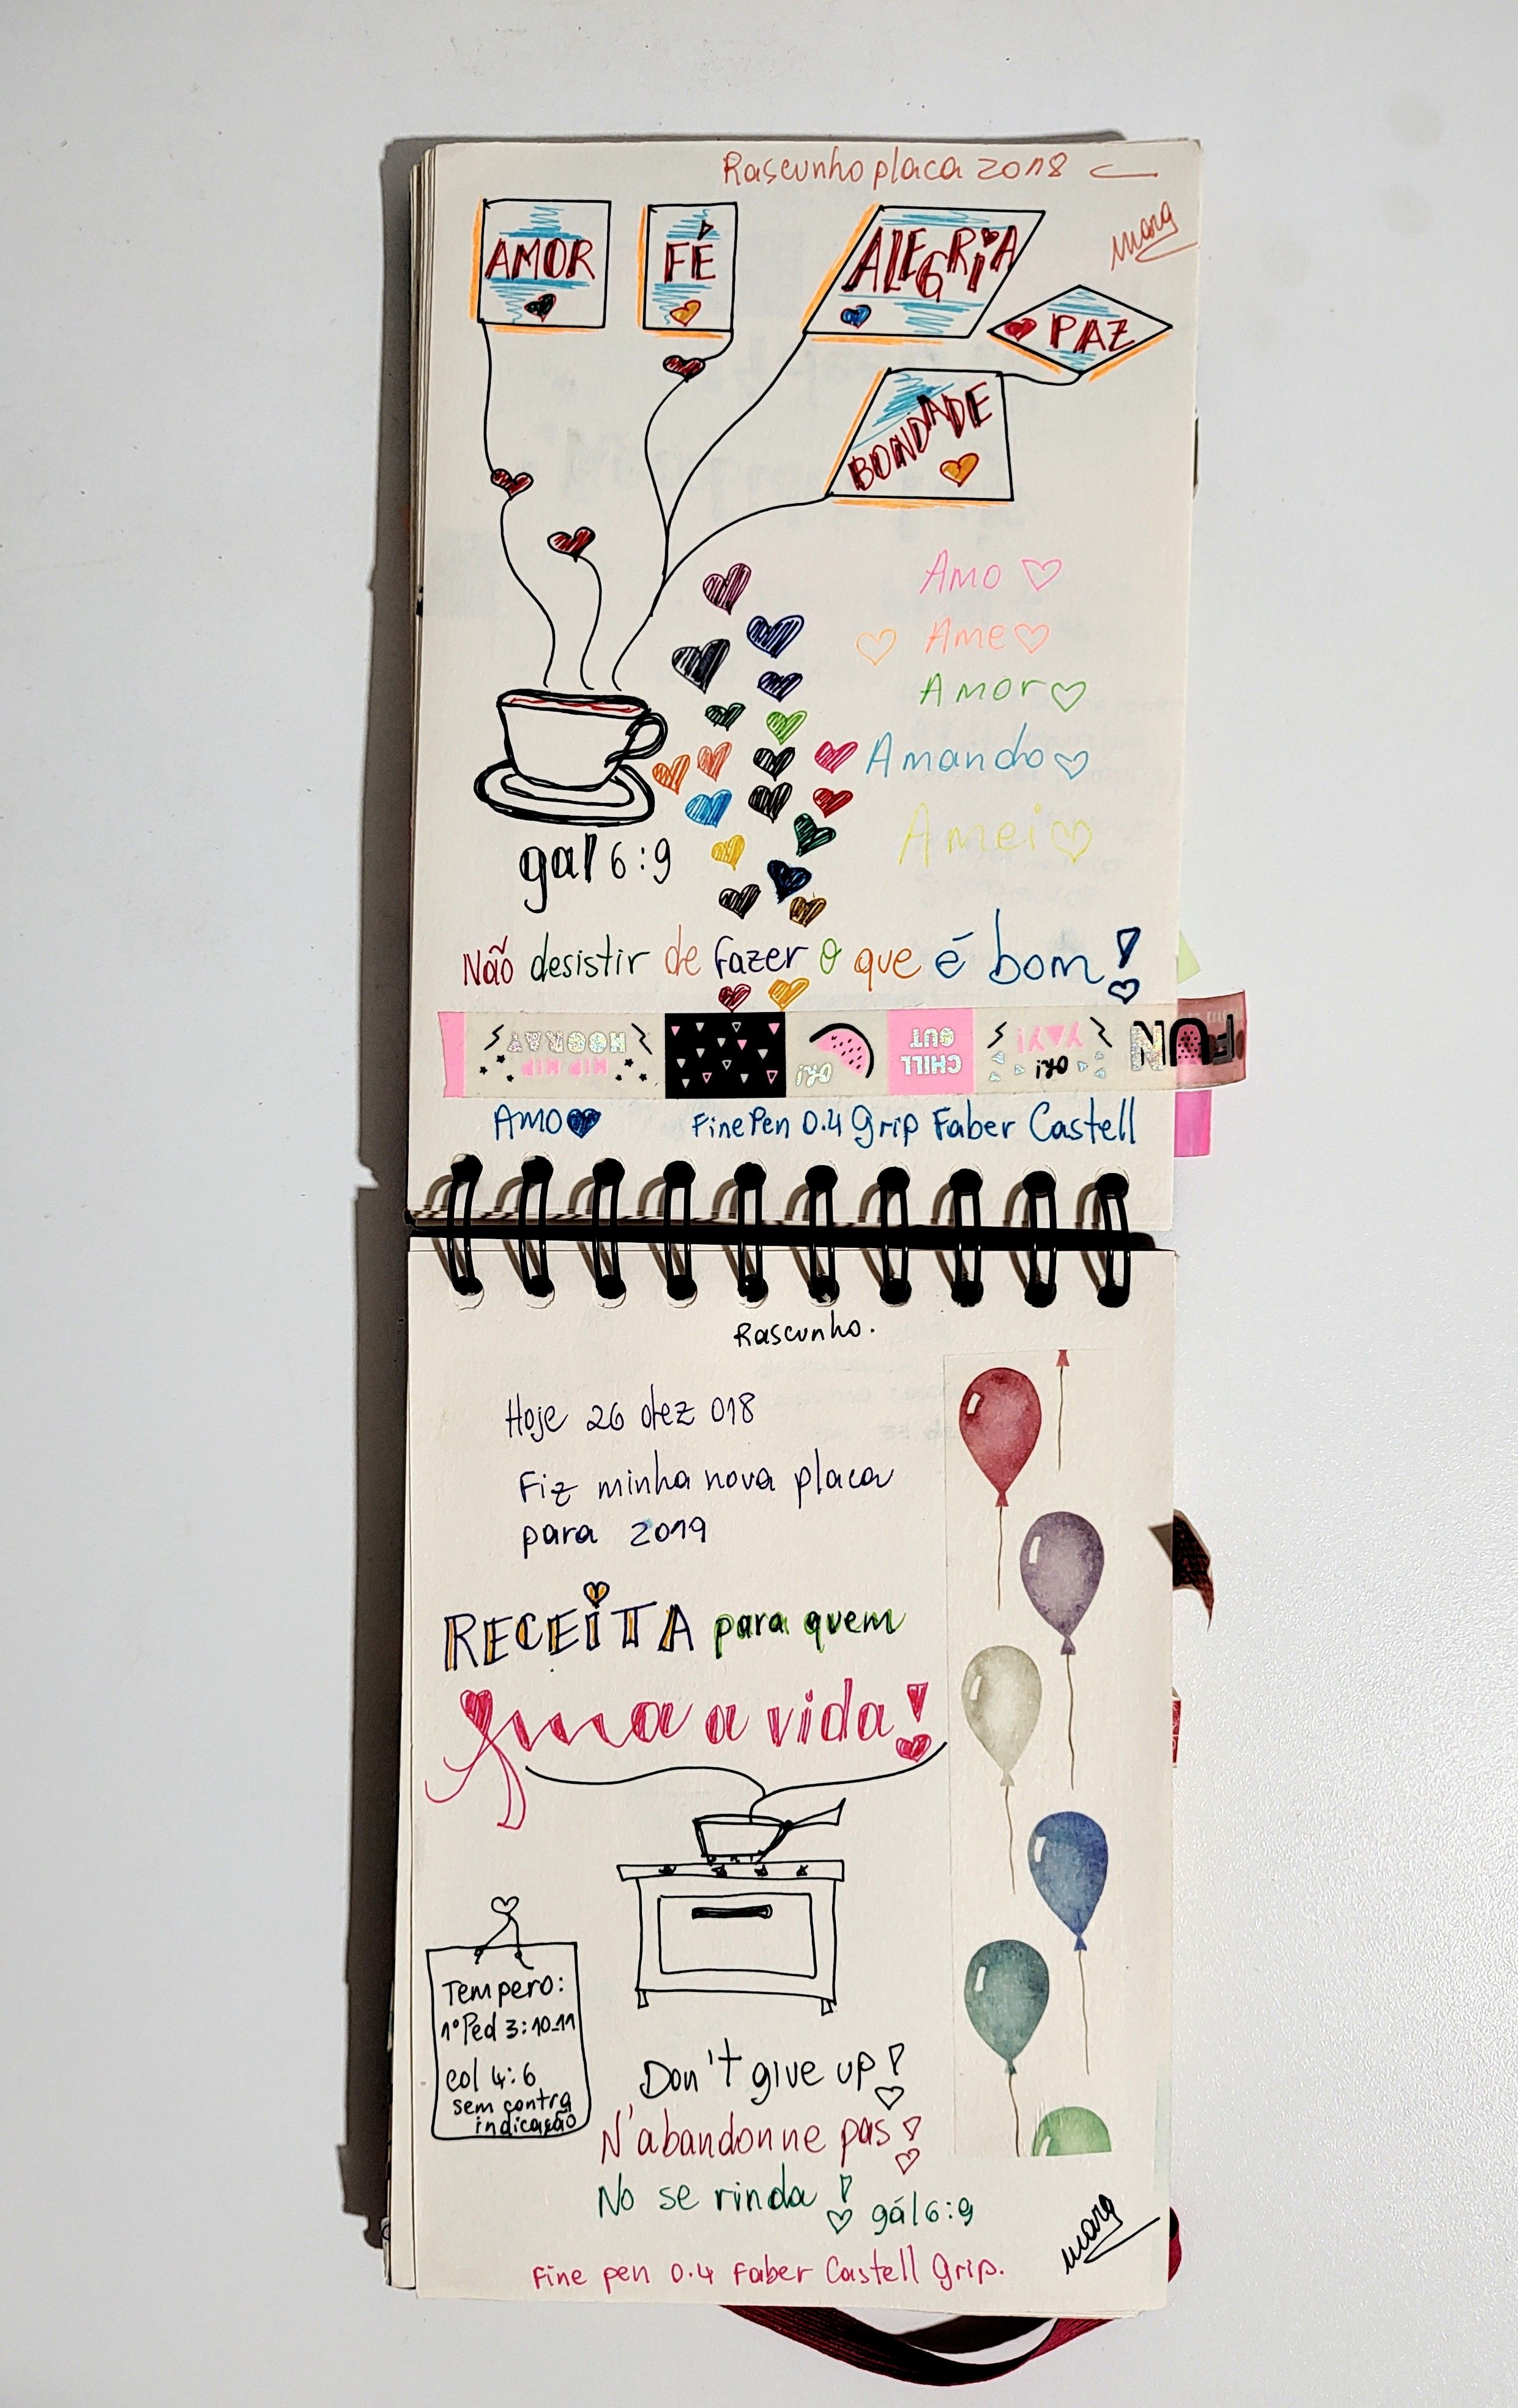 Rascunho placa 2018
marg
AMOR
FÉ
ALEGRiA
PAZ
BONDADE
Amo
Ame
Amor
Amando
Amei
gal 6:9
Não desistir de fazer o que é bom!
HIP HIP HOORAY
OH!
CHILL OUT
YAY!
OH!
FUN
AMO
Fine Pen 0.4 Grip Faber Castell
Rascunho.
Hoje 26 dez 018
Fiz minha nova placa
para 2019
RECEiTA para quem
Ama a vida!
Tempero:
1º Ped 3:10-11
col 4:6
sem contra
indicação
Don't give up!
N'abandonne pas!
No se rinda! gál 6:9
marg
Fine pen 0.4 Faber Castell Grip.